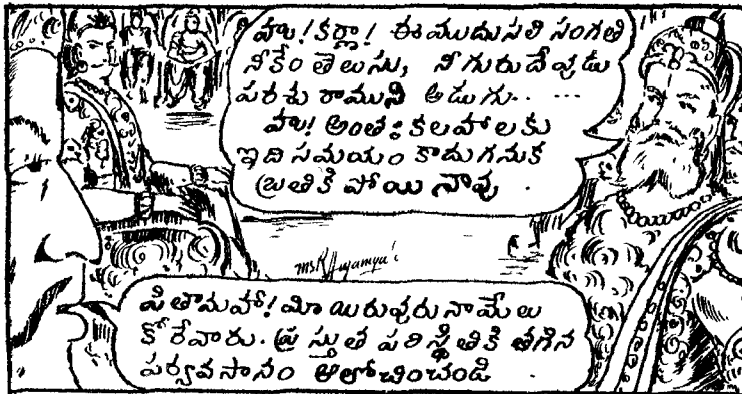 హు! కర్ణా! ఈ ముదుసలి సంగతి
నీకేం తెలుసు, నీ గురుదేవుడు
పరశు రాముని అడుగు.. ...
హు! అంతః కలహాలకు
ఇది సమయం కాదు గనుక
బ్రతికి పోయినావు .
పితామహా! మీ యిరువురు నా మేలు
కోరేవారు. ప్రస్తుత పరిస్థితికి తగిన
పర్యవసానం ఆలోచించండి